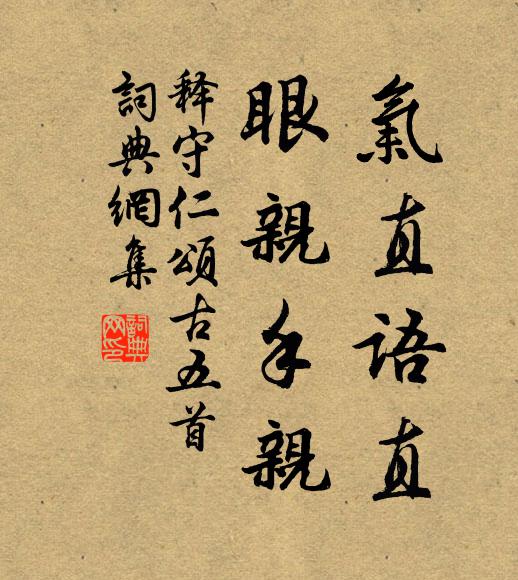 氣直語直
眼親手親
释守仁頌古五首
詞典網集
詞典網印